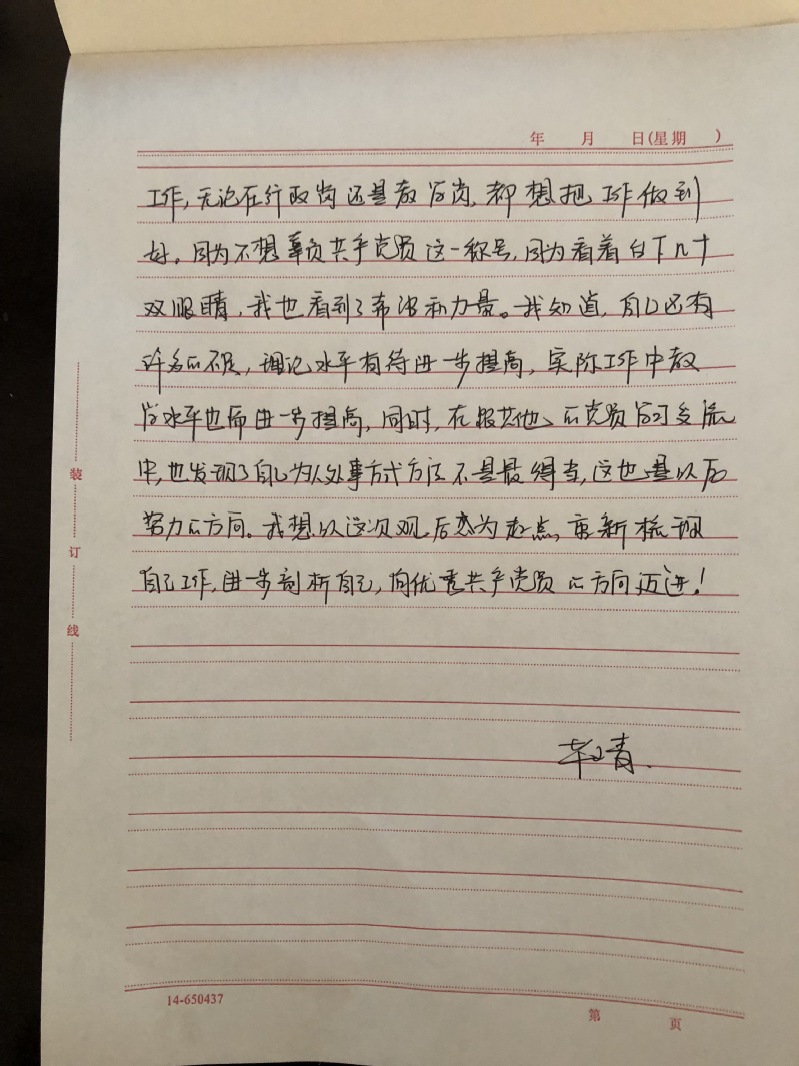 年 月 日(星期 )
工作,无论在行政岗还是教学岗,都想把工作做到
好。因为不想辜负共产党员这一称号,因为看着台下几十
双眼睛,我也看到了希望和力量。我知道,自己还有
许多的不足,理论水平有待进一步提高,实际工作中教
学水平也需进一步提高,同时,在跟其他的党员学习交流
中,也发现了自己为人处事方式方法不是最得当,这也是以后
努力的方向。我想以这次观后感为起点,重新梳理
自己工作,进一步剖析自己,向优秀共产党员的方向迈进!
装
订
线
青.
14-650437
第 页